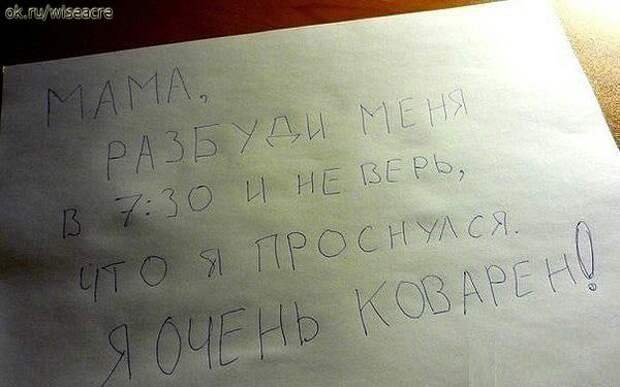 ok.ru/wiseacre
МАМА,
РАЗБУДИ МЕНЯ
В 7:30 И НЕ ВЕРЬ,
ЧТО Я ПРОСНУЛСЯ.
Я ОЧЕНЬ КОВАРЕН!